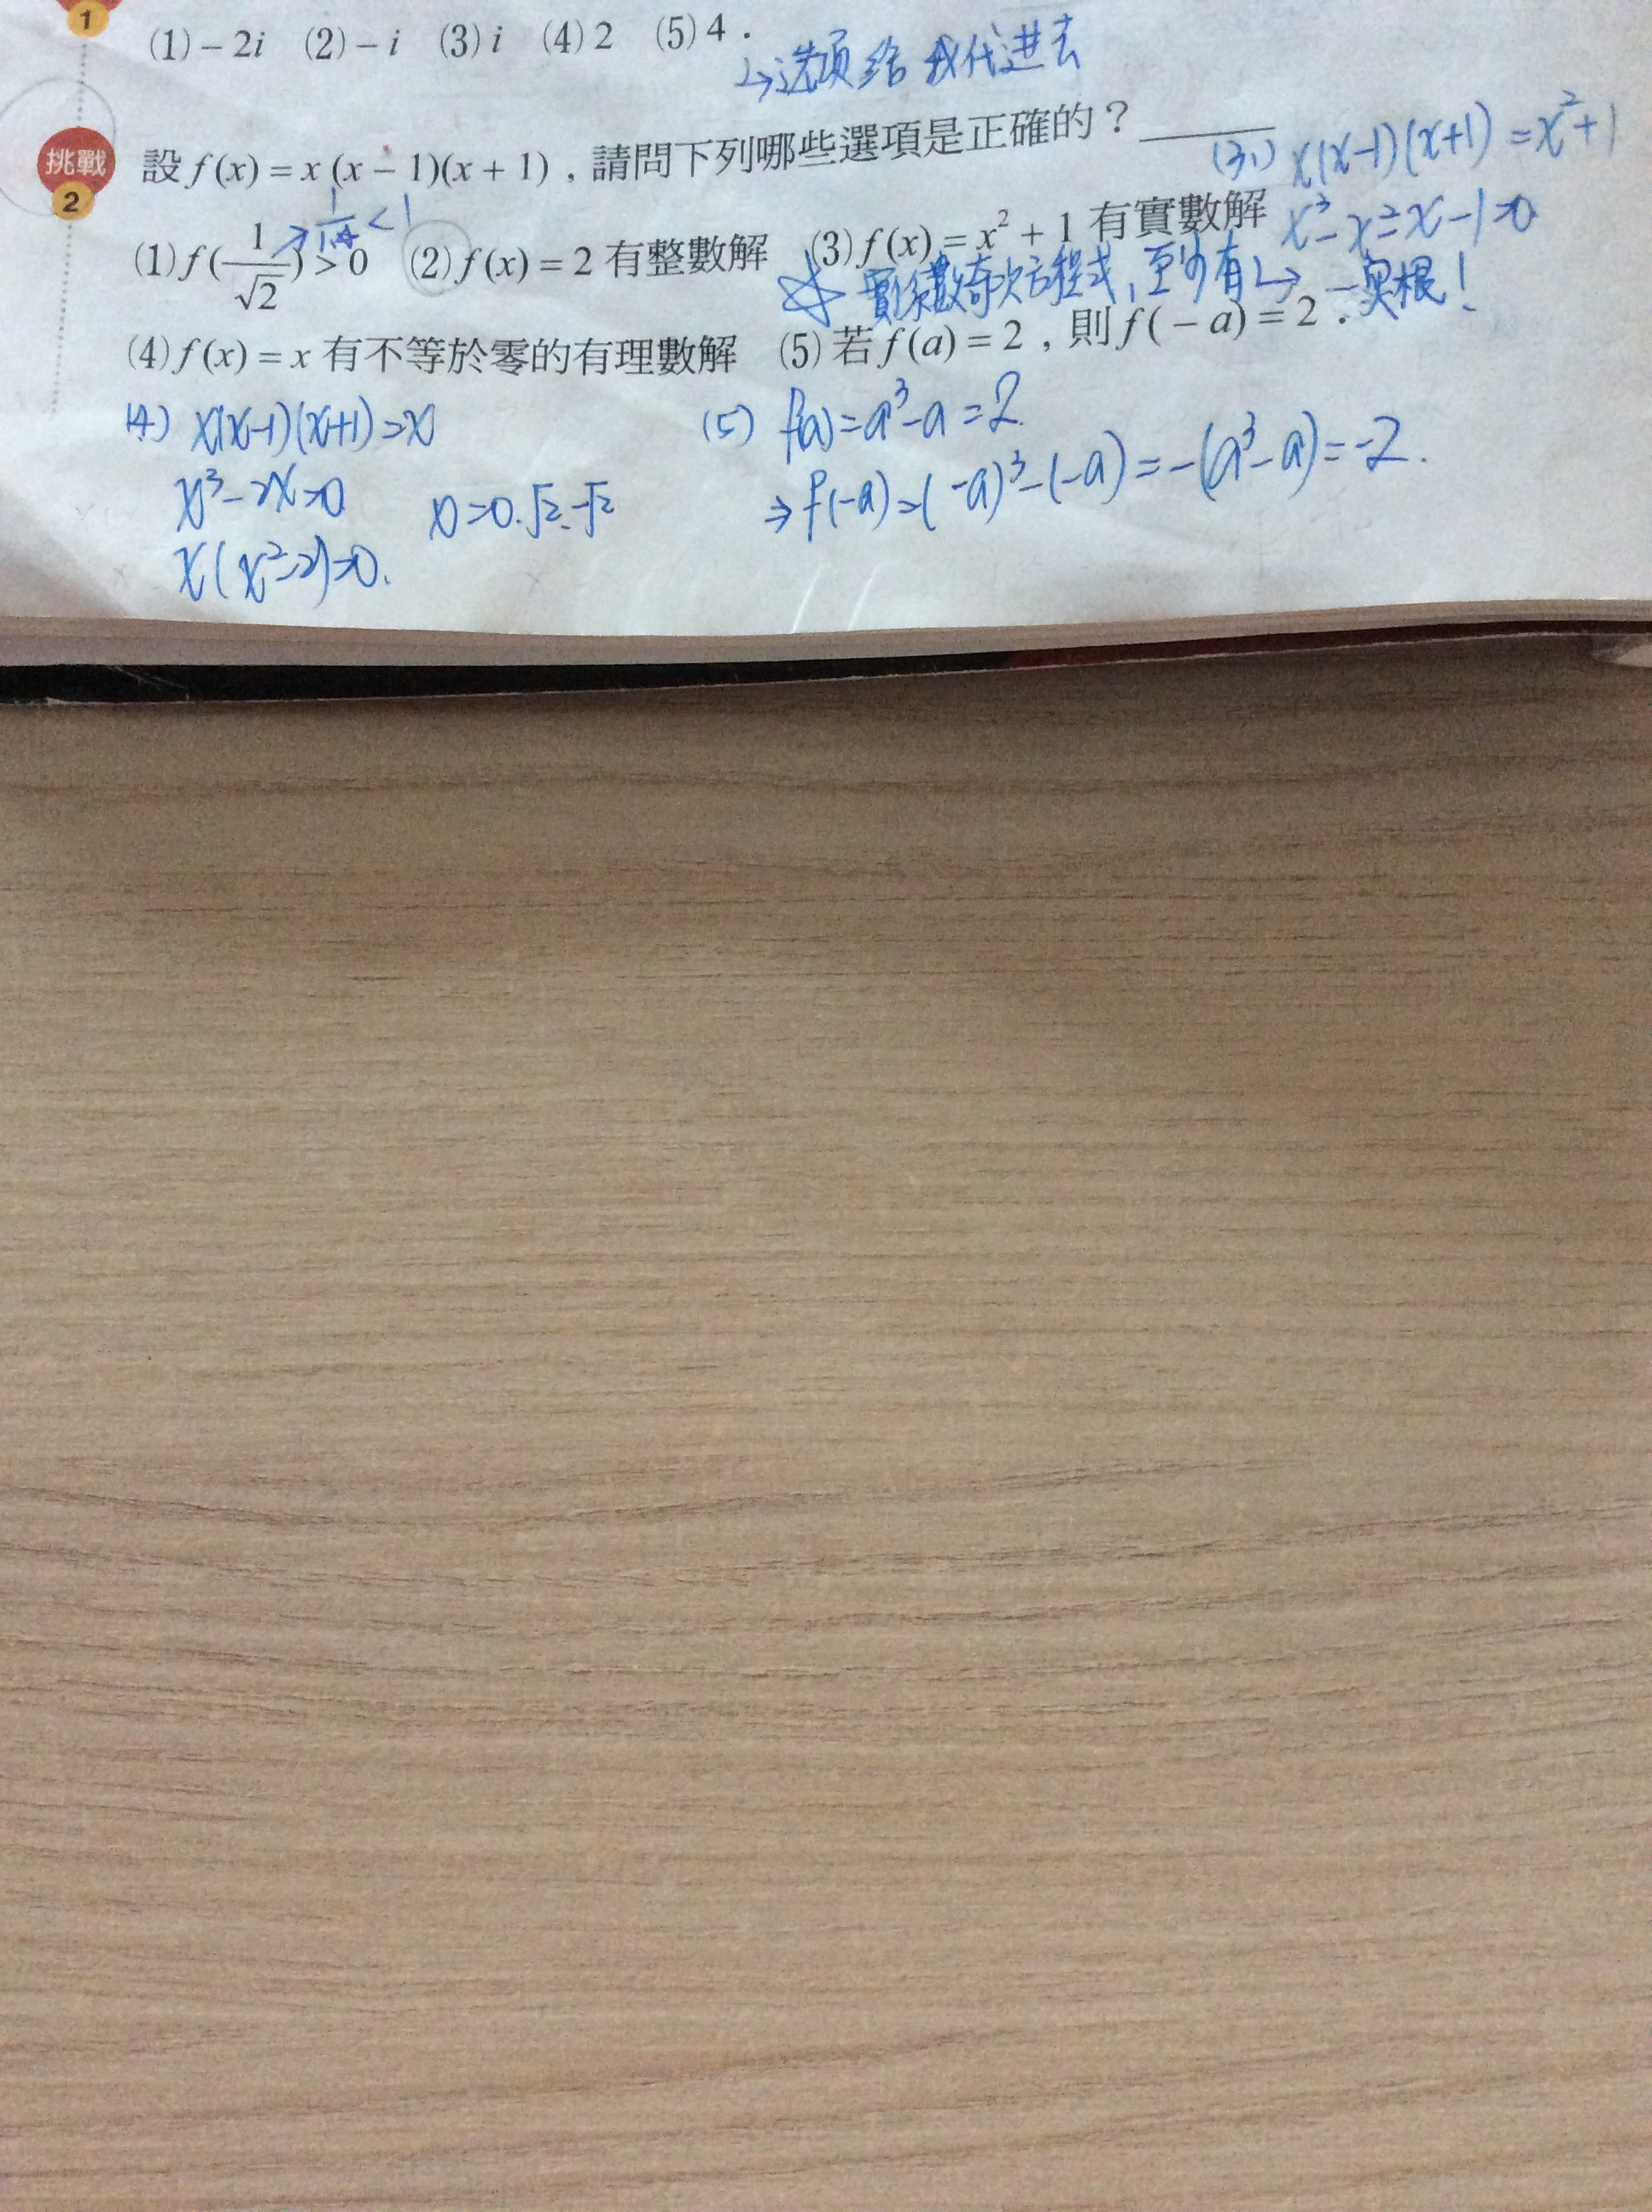 1
(1) – 2i (2) – i (3) i (4) 2 (5) 4 .
↳选项给我代进去
挑戰
2
設 f(x) = x (x – 1)(x + 1)，請問下列哪些選項是正確的？
(3、) x(x-1)(x+1) = x²+1
x³-x²-x-1=0
1/1.4 < 1
(1) f(1/√2) > 0 (2) f(x) = 2 有整數解 (3) f(x) = x² + 1 有實數解
☆ 實係數奇次方程式，至少有一實根！
(4) f(x) = x 有不等於零的有理數解 (5) 若 f(a) = 2，則 f(– a) = 2．
(4) x(x-1)(x+1)=x
x³-2x=0
x(x²-2)=0.
x=0.√2.-√2
(5) f(a)=a³-a=2
⇒ f(-a)=(-a)³-(-a)=-(a³-a)=-2.